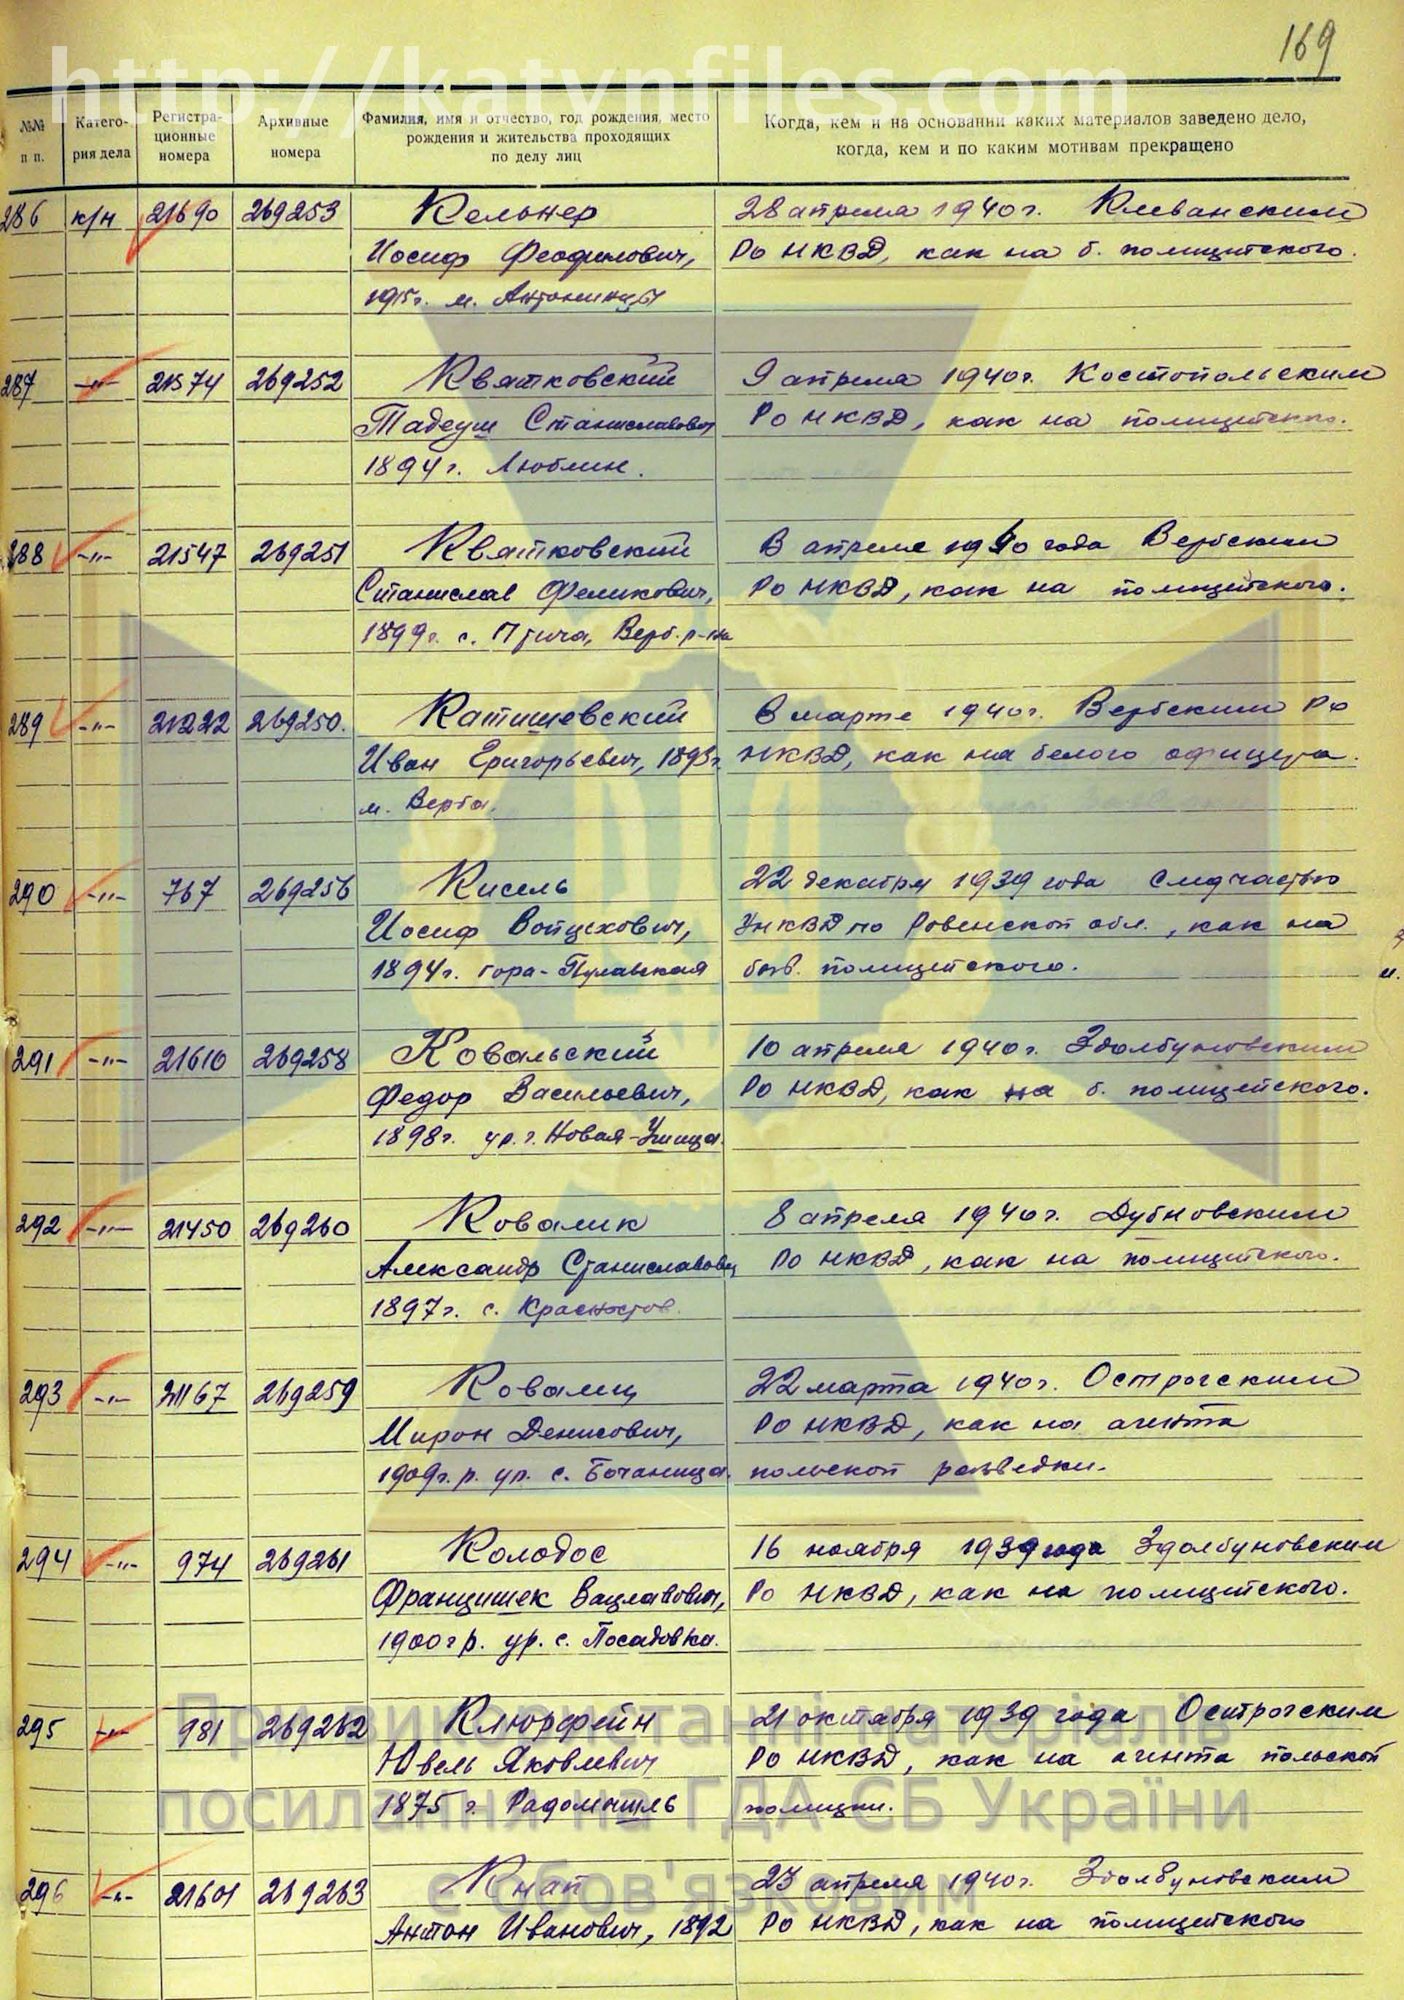 169
http://katynfiles.com
№№ п п.
Катего-
рия дела
Регистра-
ционные
номера
Архивные
номера
Фамилия, имя и отчество, год рождения, место
рождения и жительства проходящих
по делу лиц
Когда, кем и на основании каких материалов заведено дело,
когда, кем и по каким мотивам прекращено
286 к/н 21690 269253 Кельнер 28 апреля 1940 г. Клеванским
Иосиф Феофилович, РО НКВД, как на б. полицейского.
1915 г. м. Антонинцы
287 -"- 21574 269252 Квятковский 9 апреля 1940 г. Костопольским
Тадеуш Станиславович РО НКВД, как на полицейского.
1894 г. Люблин.
288 -"- 21547 269251 Квятковский В апреле 1940 года Вербским
Станислав Феликсович, РО НКВД, как на полицейского.
1899 г. с. Птича, Верб. р-на
289 -"- 21222 269250. Катишевский В марте 1940 г. Вербским РО
Иван Григорьевич, 1893 г. НКВД, как на белого офицера.
м. Верба.
290 -"- 767 269256 Кисель 22 декабря 1939 года следчастью
Иосиф Войцехович, УНКВД по Ровенской обл., как на
1894 г. гора-Пулавская быв. полицейского.
291 -"- 21610 269258 Ковальский 10 апреля 1940 г. Здолбуновским
Федор Васильевич, РО НКВД, как на б. полицейского.
1898 г. ур. г. Новая-Ушица.
292 -"- 21450 269260 Ковалик 8 апреля 1940 г. Дубновским
Александр Станиславович РО НКВД, как на полицейского.
1897 г. с. Красностов.
293 -"- 21167 269259 Ковалец 22 марта 1940 г. Острогским
Мирон Денисович, РО НКВД, как на агента
1909 г. р. ур. с. Бочаница. польской разведки.
294 -"- 974 269261 Колодос 16 ноября 1939 года Здолбуновским
Францишек Вацлавович, РО НКВД, как на полицейского.
1900 г р. ур. с. Посадовка.
295 -"- 981 269262 Клюрфейн 21 октября 1939 года Острогским
Ювель Яковлевич РО НКВД, как на агента польской
1875 г. Радомышль полиции.
296 -"- 21601 269263 Кнап 23 апреля 1940 г. Здолбуновским
Антон Иванович, 1892 РО НКВД, как на полицейского
При використанні матеріалів
посилання на ГДА СБ України
є обов'язковим